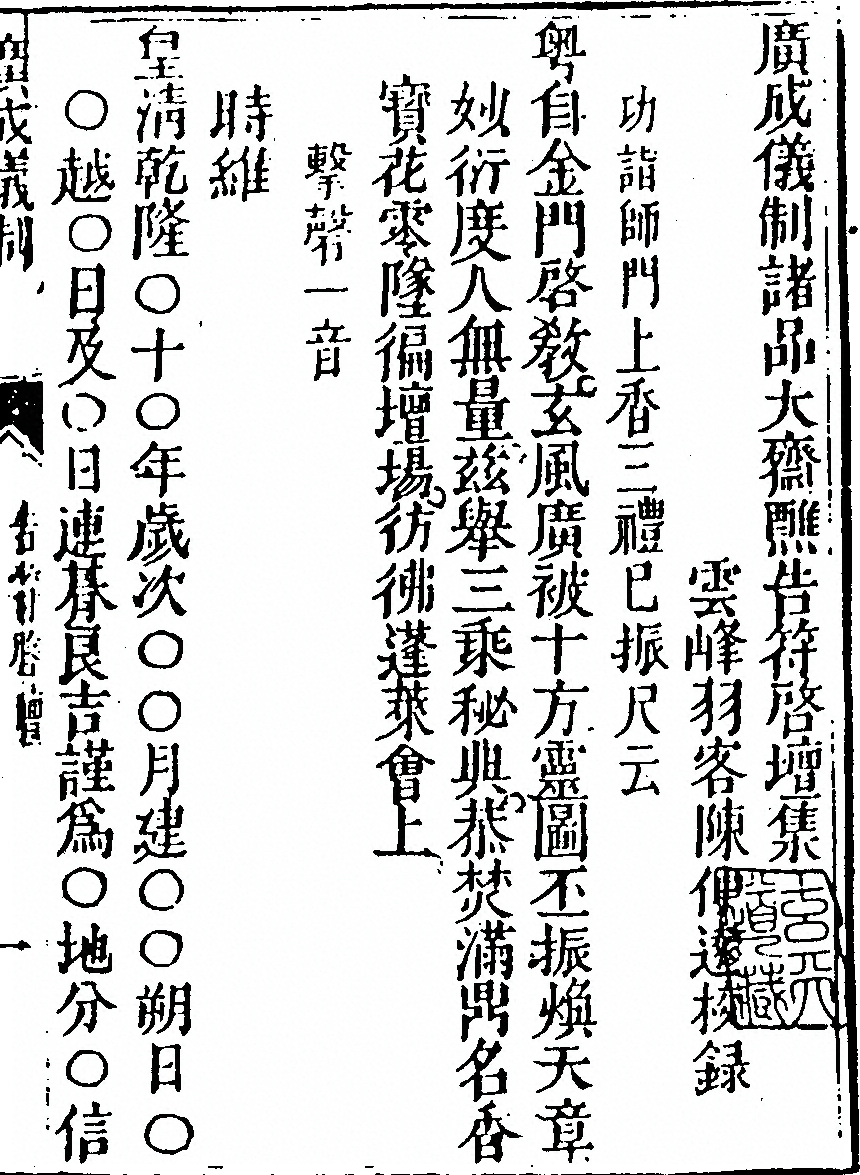 廣成儀制諸品大齋醮告符啓壇集
雲峰羽客陳仲遠校録
功詣師門上香三禮已振尺云
粤自金門啓敎玄風廣被十方靈圖丕振煥天章
妙衍度人無量兹舉三乘秘典恭焚滿鼎名香
寶花零墜徧壇塲彷彿蓬萊會上
擊磬一音
時維
皇清乾隆○十○年歲次○○月建○○朔日○
○越○日及○日連暮良吉謹爲○地分○信
廣成儀制
告符啓壇